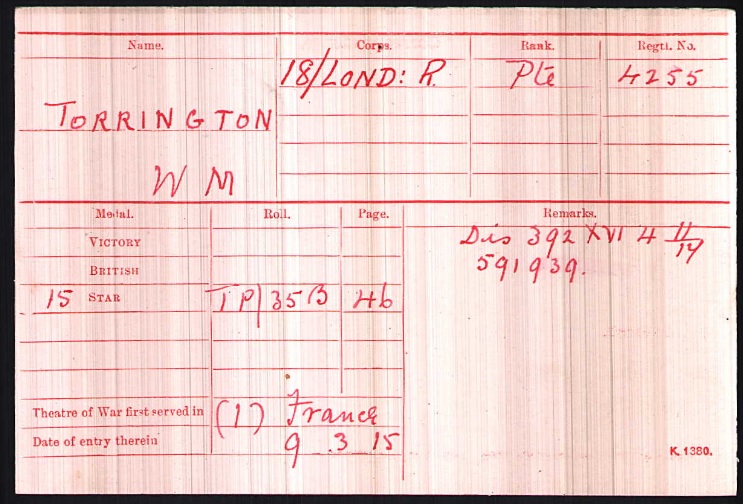 Name. Corps. Rank. Regtl. No.
18/LOND: R. Pte 4255
TORRINGTON
W M
Medal. Roll. Page. Remarks.
VICTORY Dis 392 XVI 4 11/17
BRITISH 591939.
15 STAR TP/35B 46
Theatre of War first served in (1) France
Date of entry therein 9.3.15
K. 1380.